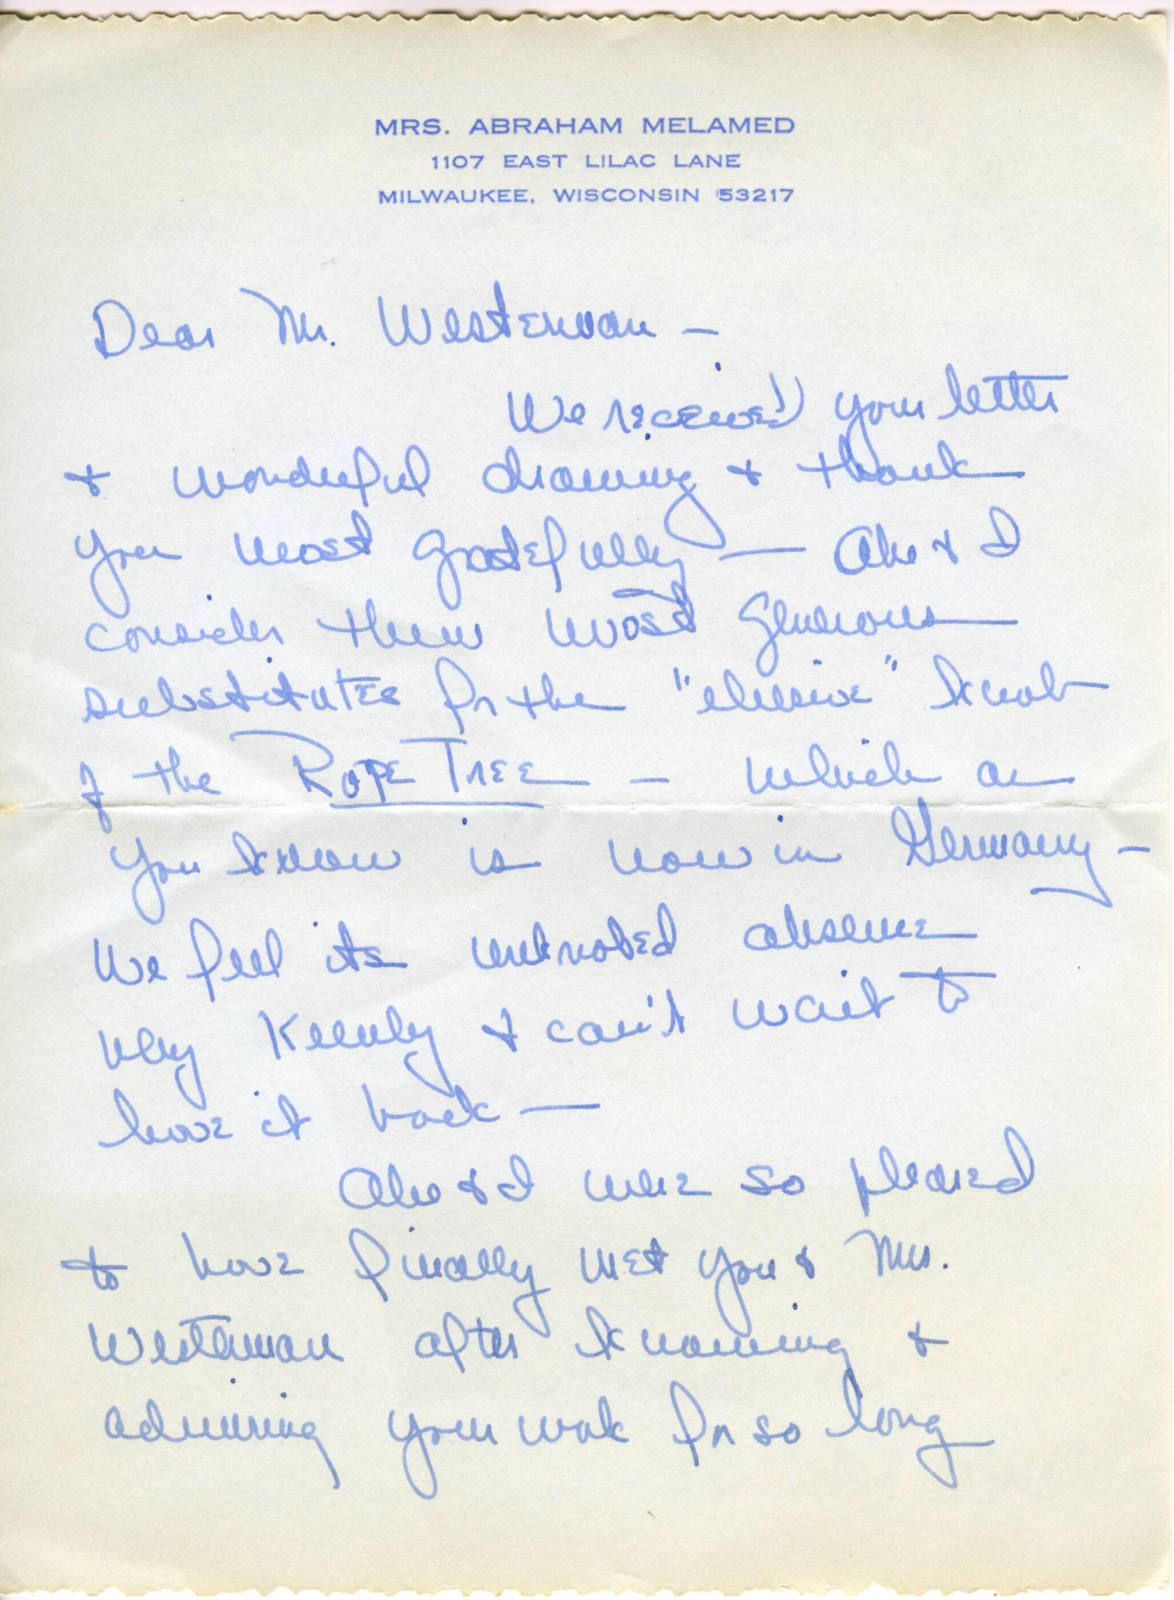 MRS. ABRAHAM MELAMED
1107 EAST LILAC LANE
MILWAUKEE, WISCONSIN 53217
Dear Mr. Westerman –
We received your letter
+ wonderful drawing + thank
you most gratefully — Abe + I
consider them most generous
substitutes for the "elusive" knob
of the Rope Tree – which as
you know is now in Germany –
We feel its unknobed absence
very keenly + can't wait to
have it back —
Abe + I were so pleased
to have finally met you + Mrs.
Westerman after knowing +
admiring your work for so long